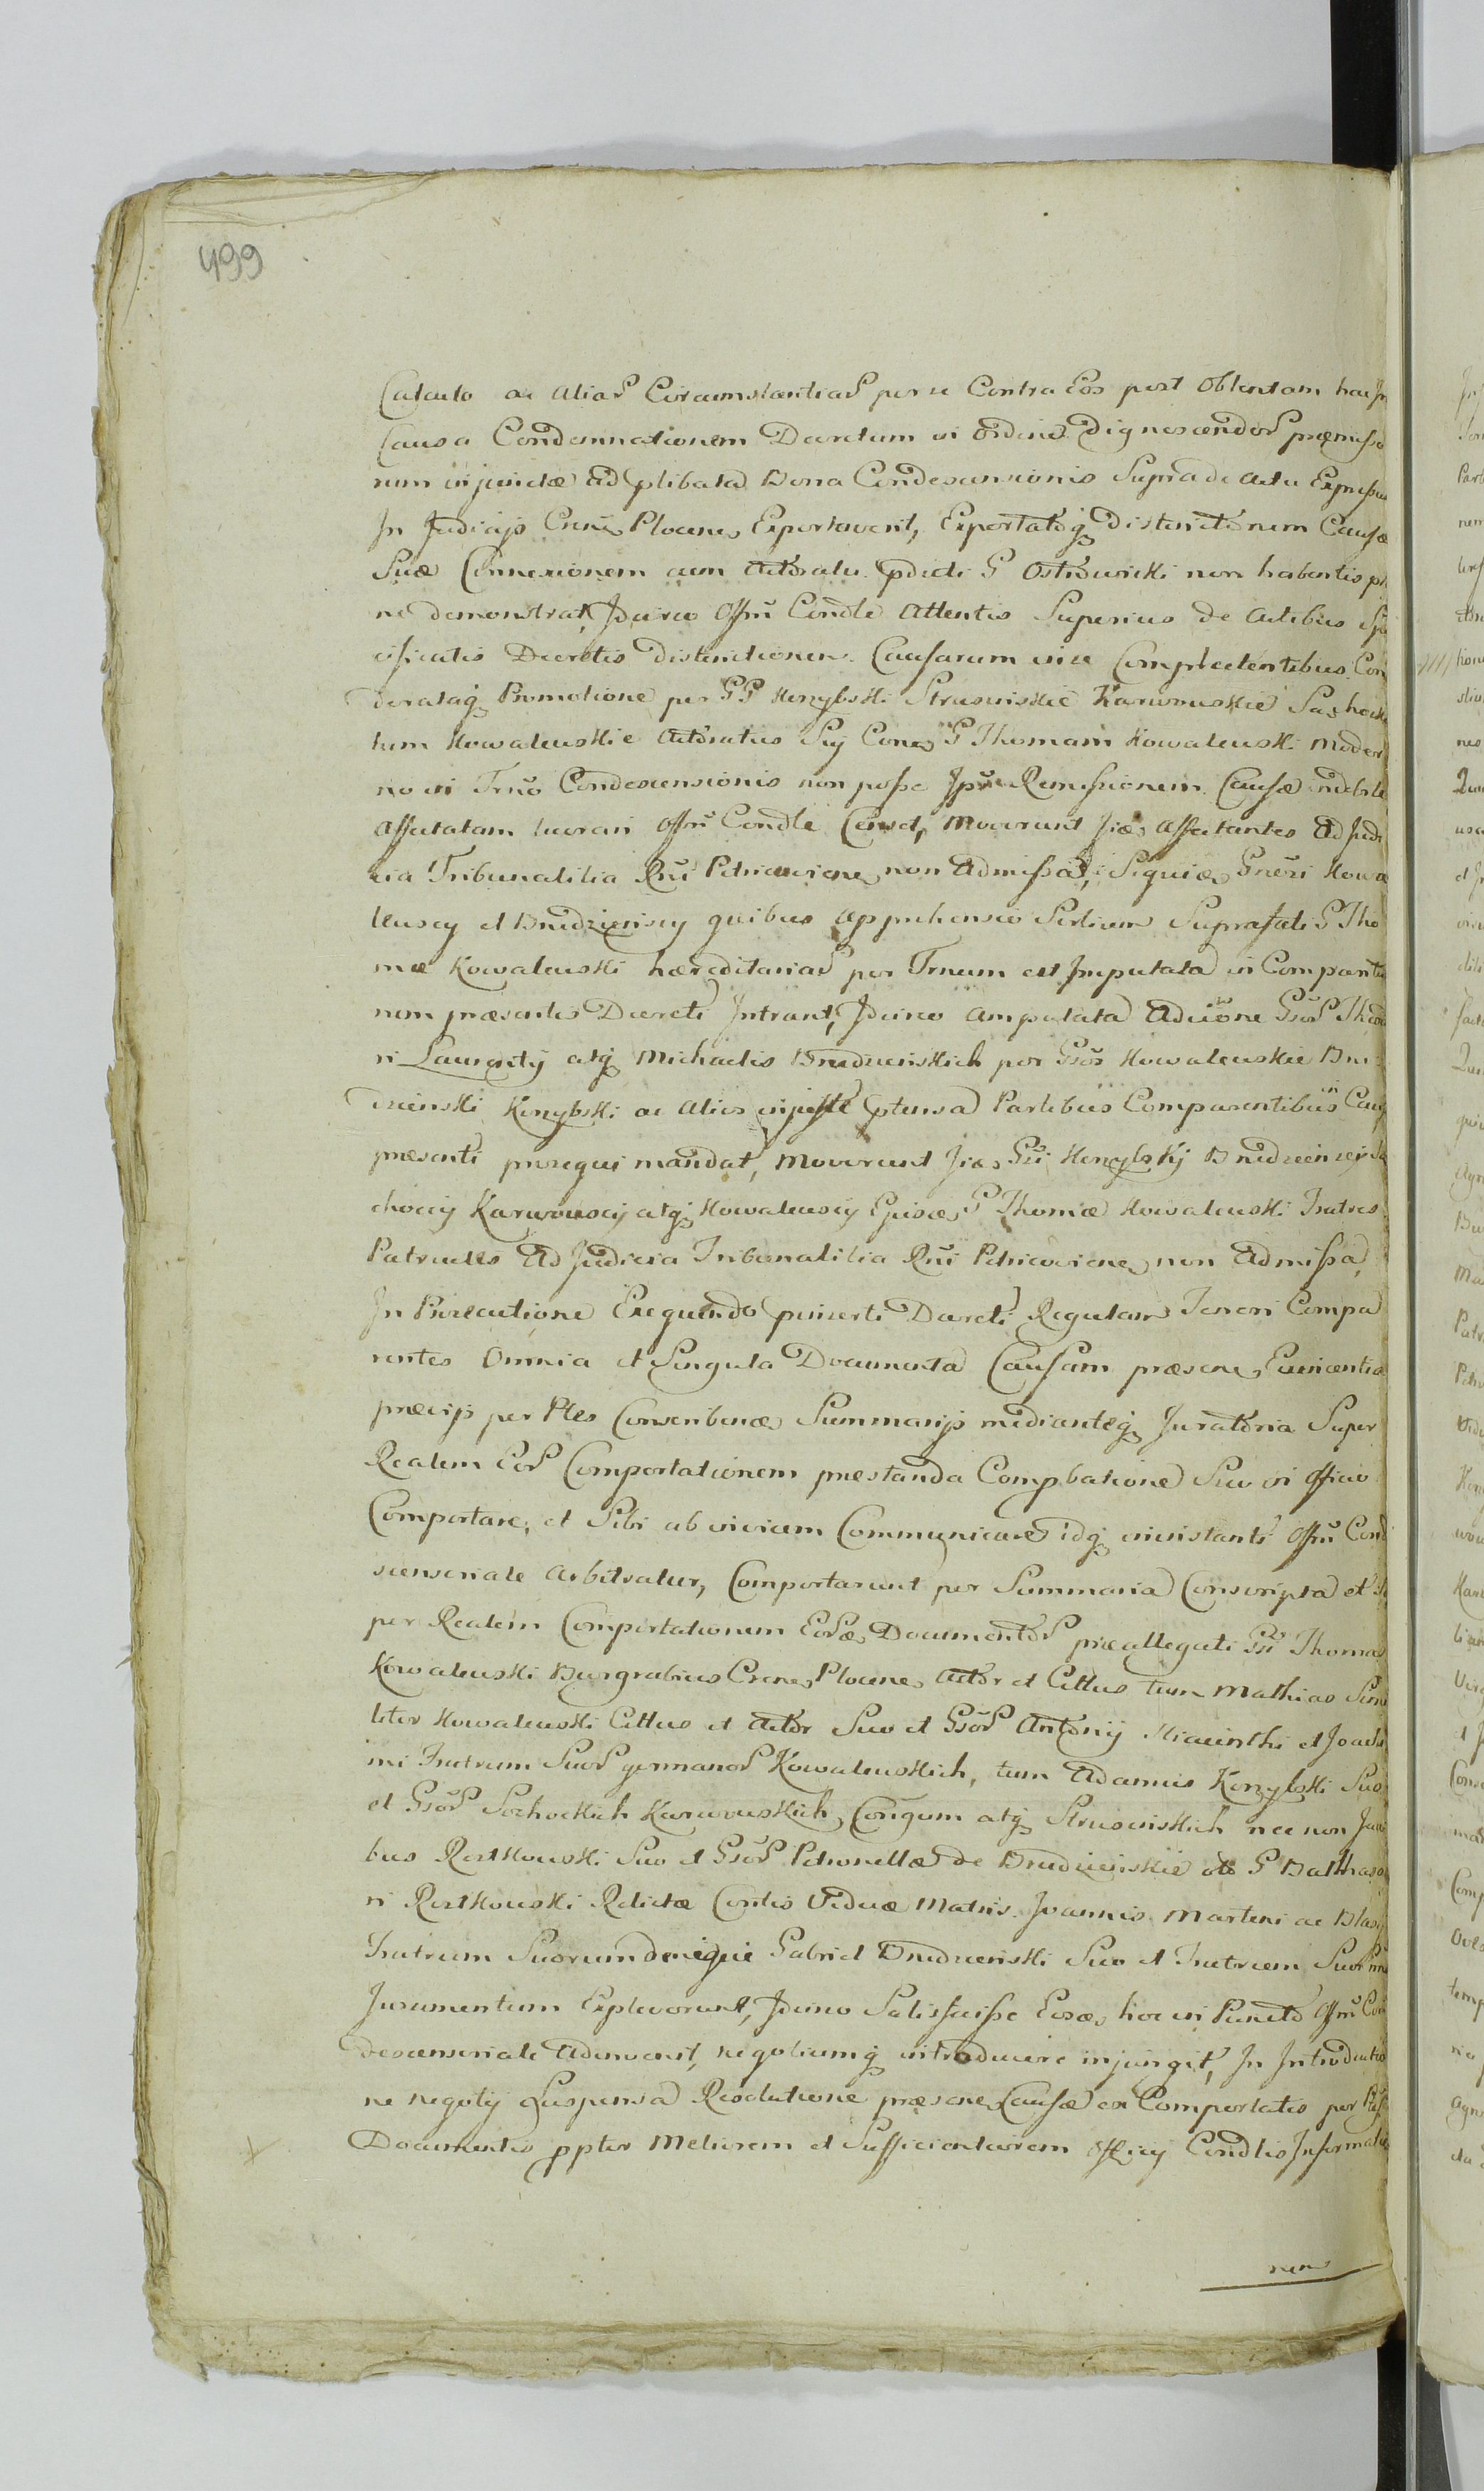 499
Calculo ac aliar Circumstantiar per se Contra Eos post Obtentam hac In
Causa Condemnationem Decretum in Ordine Dignoscendor præmisso
rum injunctæ ad plibata Bona Condescensionis Supra de Actu Expressu
In Judicijs Cnes Plocenes Exportaverit, Exportatoq distinctonem Causæ
Suæ Connexionem cum Actoratu pdicti G Ostrowicki non habentis p
ne demonstrat, Idcirco Offm Condle Attentis Superius de Actibus Spe
cificatis Decretis distinctionem Causarum in se Complectentibus Con
derataq Promotione per GG Kenzybski Strusinskie Karwowskie Sachock
tum Kowalewskie Actoratus Sui Cones G Thomam Kowalewski Moder
no in Trno Condescensionis non posse Ipm Remissionem Causæ indebite
Affectatam lucrari Offm Condle Censet, Moverunt Jiæs Affectantes Ad Judi
cia Tribunalitia Rni Petricovienes non Admissa, Siquidem Gnesi Kowa
lewscy et Brudzienscy quibus apprehensio Sortium Suprafati G Tho
mæ Kowalewski hæreditariar per Trnum est Imputata in Comparitio
nem præsentis Decreti Intrant, Idcirco amputata Adcitone Gsor Theodo
ri Laurentij atq Michaelis Brudzinskich per Gsos Kowalewskie Bru
dzienski Kenzybski ac alios injuste ptensa Partibus Comparentibus in Caus
præsenti prosequi mandat, Moverunt Jiæs Gsi Kenzybskij Brudziensciy Sa
choccy Karwowscy atq Kowalewscy Episces G Thomæ Kowalewski Fratres
Patrueles Ad Judicia Tribunalitia Rni Petricovienes non Admissa,
In Prosecutione Exequendo Decreti Regulam Teneri Compa
rentes Omnia et Singula Documenta Causam præsenes Evincentia
præcijs per Ptes Conscribenes Summarijs mediantéq Juratoria Super
Realem Eor Comportationem præstanda Comprobatione Suo in Officio
Comportare, et Sibi ab invicem Communicare idq in instanti Offm Cond
scensoriale Arbitratur, Comportarunt per Summaria Conscripta et Su
per Realem Comportationem Eores Documentor præallegati Gsi Thomas
Kowalewski Burgrabius Cnes Plocenes Actor et Cittus tum Mathias Simi
liter Kowalewski Cittus et Actor Suo et Gsor Antonij Hiacinthi et Joachi
mi Fratrum Suor germanor Kowalewskich, tum Adamus Kenzybski Suo
et Gsor Sochockich Karwowskich, Congum atq Strusinskich nec non Jaco
bus Rostkowski Suo et Gsor Petronellæ de Brudzinskie ab G Balthasa
ri Rostkowski Relictæ Contis Viduæ Matris Joannis Martini ac Blasij
Fratrum Suorum denique Gabriel Brudzienski Suo et Fratrum Suor
Juramentum Expleverunt, Idcirco Satisfuisse Eosæ hoc in Puncto Offm Con
descensoriale Adinvenit, negotiumq introducere injungit, In Introductio
ne negotij Suspensa Resolutione præsenes Causæ ex Comportatis per Ptes
Documentis ppter Meliorem et Sufficientiorem Officij Condlis Informatio
nem